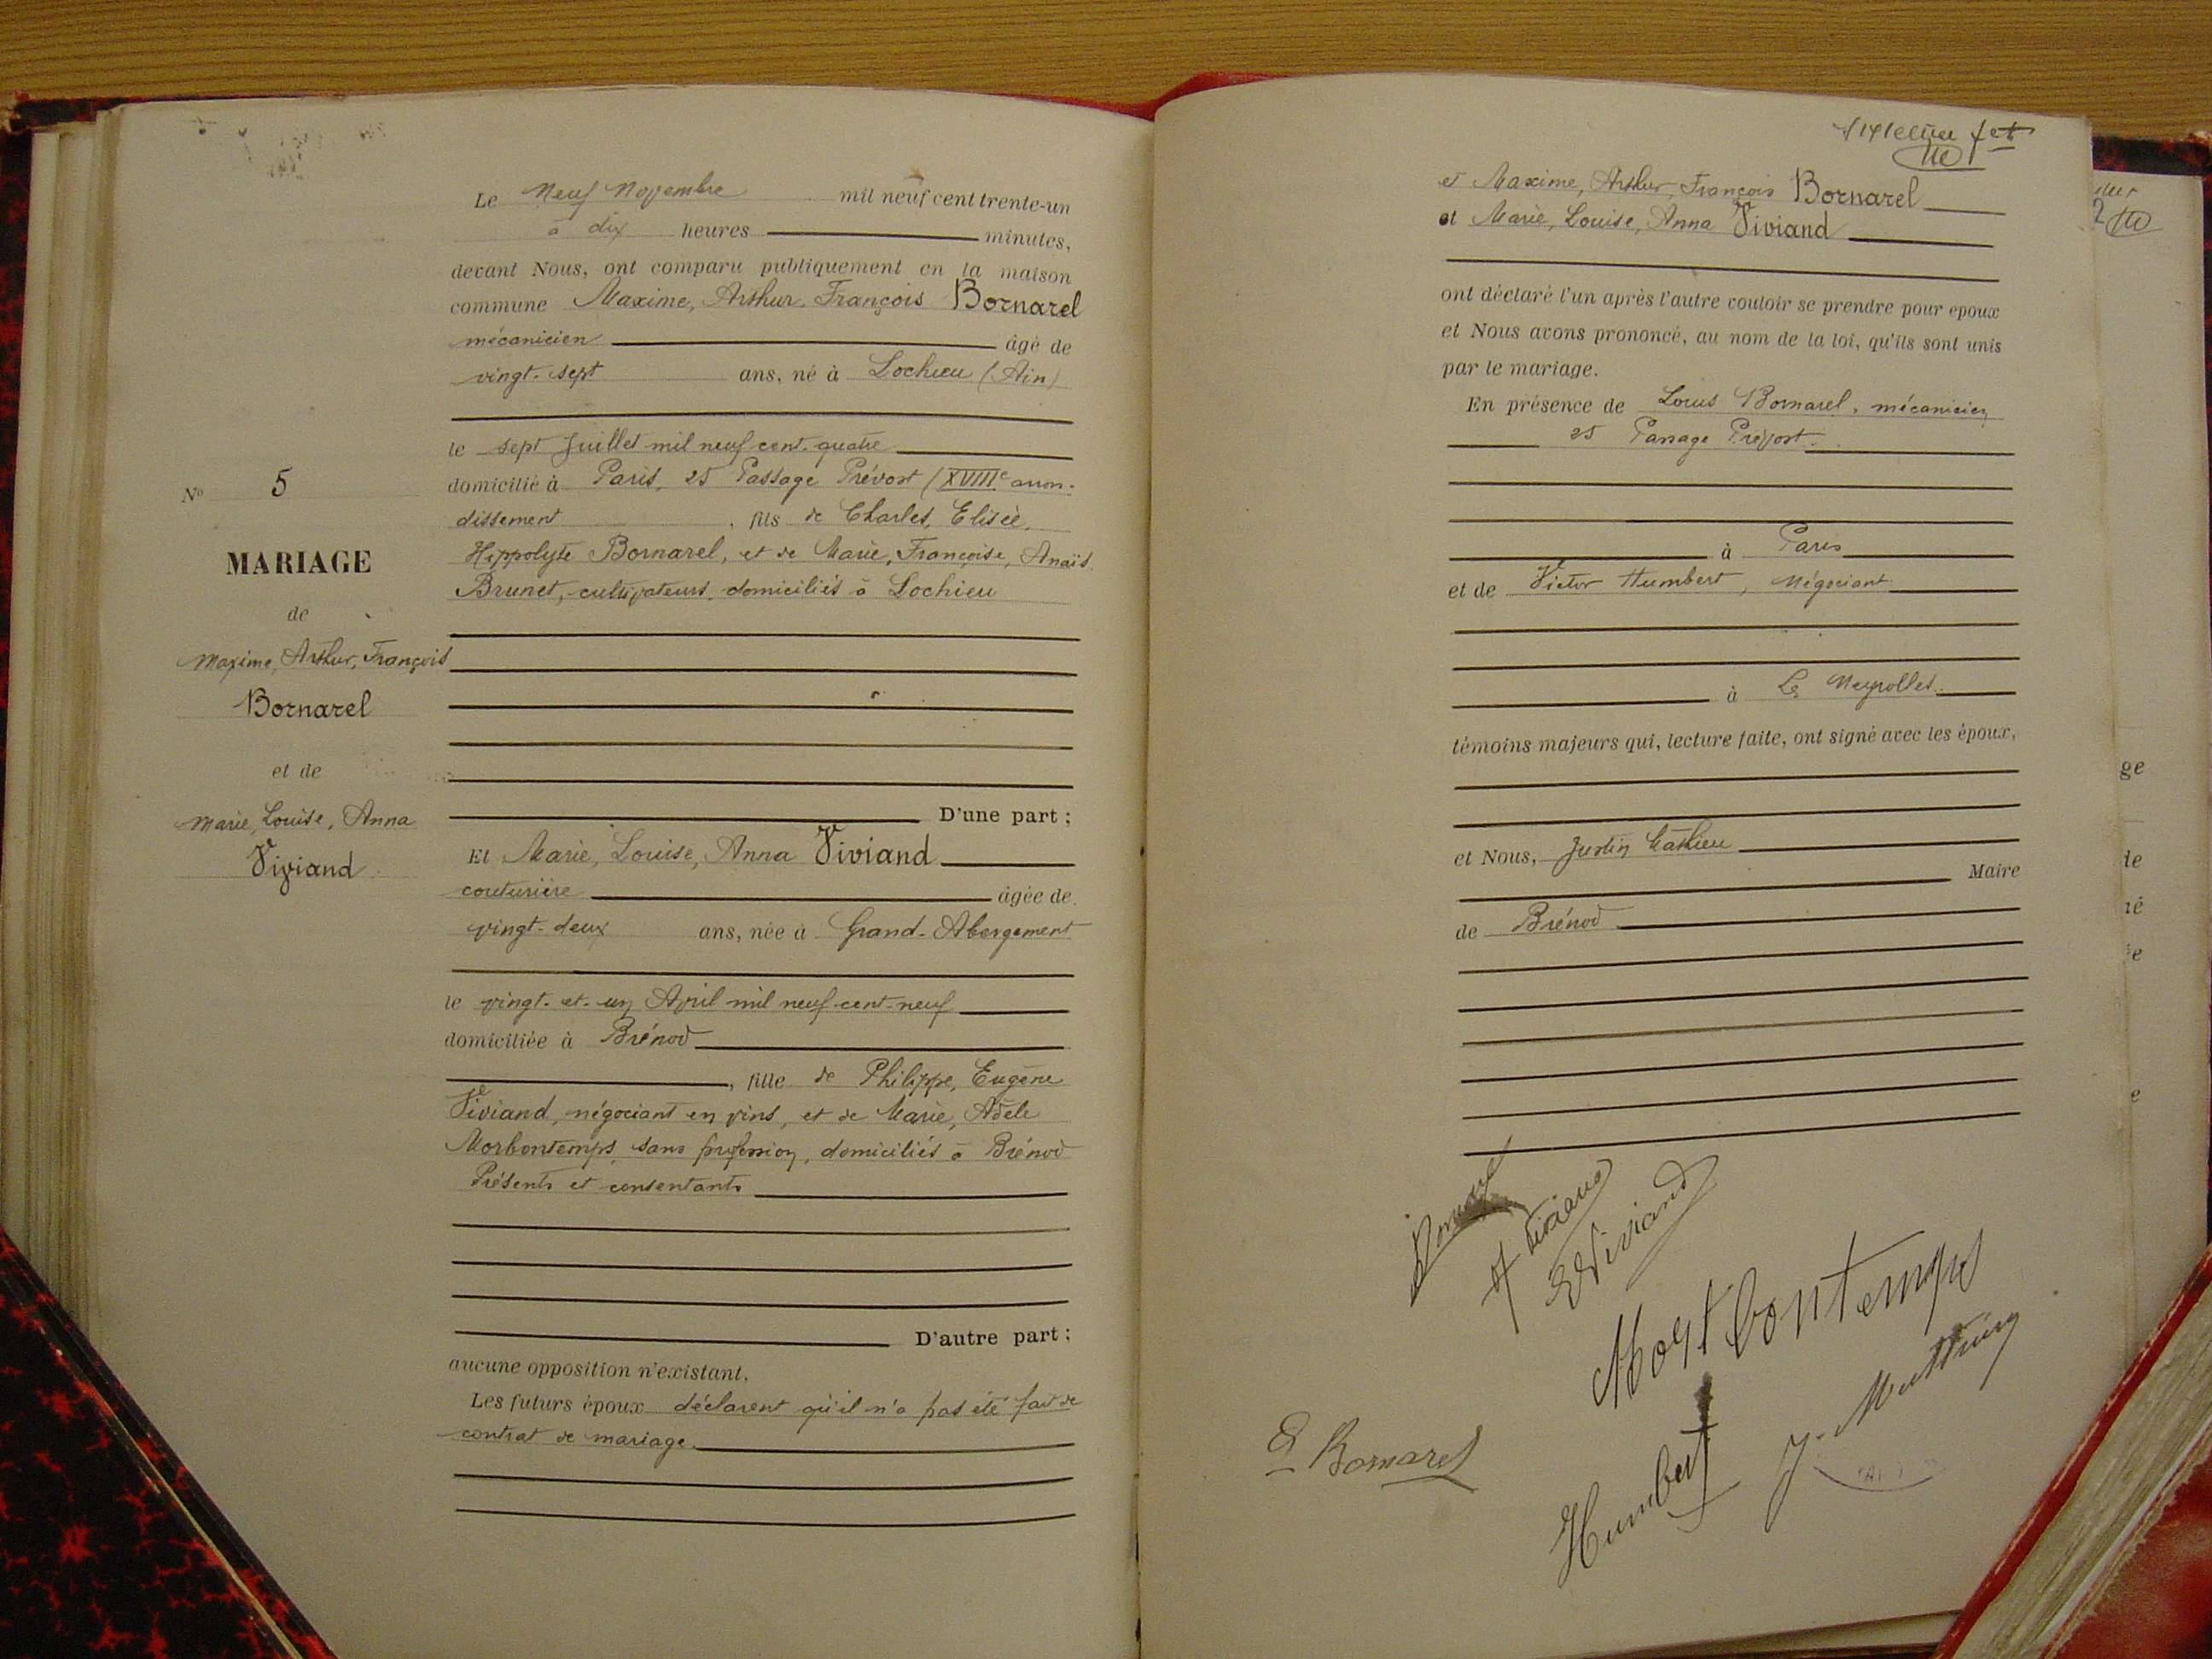 Le Neuf Novembre mil neuf cent trente-un
à dix heures minutes,
devant Nous, ont comparu publiquement en la maison
commune Maxime, Arthur, François Bornarel
mécanicien âgé de
vingt-sept ans, né à Lochieu (Ain)
le sept Juillet mil neuf cent quatre
domicilié à Paris, 25 Passage Prévost (XVIIIe arron-
dissement, fils de Charles, Elisée,
Hippolyte Bornarel, et de Marie, Françoise, Anaïs
Brunet, cultivateurs, domiciliés à Lochieu
D'une part ;
Et Marie, Louise, Anna Viviand
couturière âgée de
vingt-deux ans, née à Grand-Abergement
le vingt-et-un Avril mil neuf cent-neuf
domiciliée à Brénod
, fille de Philippe, Eugène
Viviand, négociant en vins, et de Marie, Adèle
Morbontemps, sans profession, domiciliés à Brénod
Présents et consentants
D'autre part ;
aucune opposition n'existant,
Les futurs époux déclarent qu'il n'a pas été fait de
contrat de mariage.
No 5
MARIAGE
de
Maxime, Arthur, François
Bornarel
et de
Marie, Louise, Anna
Viviand
et Maxime, Arthur, François Bornarel
et Marie, Louise, Anna Viviand
ont déclaré l'un après l'autre vouloir se prendre pour époux
et Nous avons prononcé, au nom de la loi, qu'ils sont unis
par le mariage.
En présence de Louis Bornarel, mécanicien
25 Passage Prévost
à Paris
et de Victor Humbert, Négociant
à Les Neyrolles
témoins majeurs qui, lecture faite, ont signé avec les époux,
et Nous, Justin Mathieu
Maire
de Brénod
Bornarel
A Viviand
E Viviand
Mortbontemps
J. Mathieu
Bornarel
Humbert
ge
de
né
e